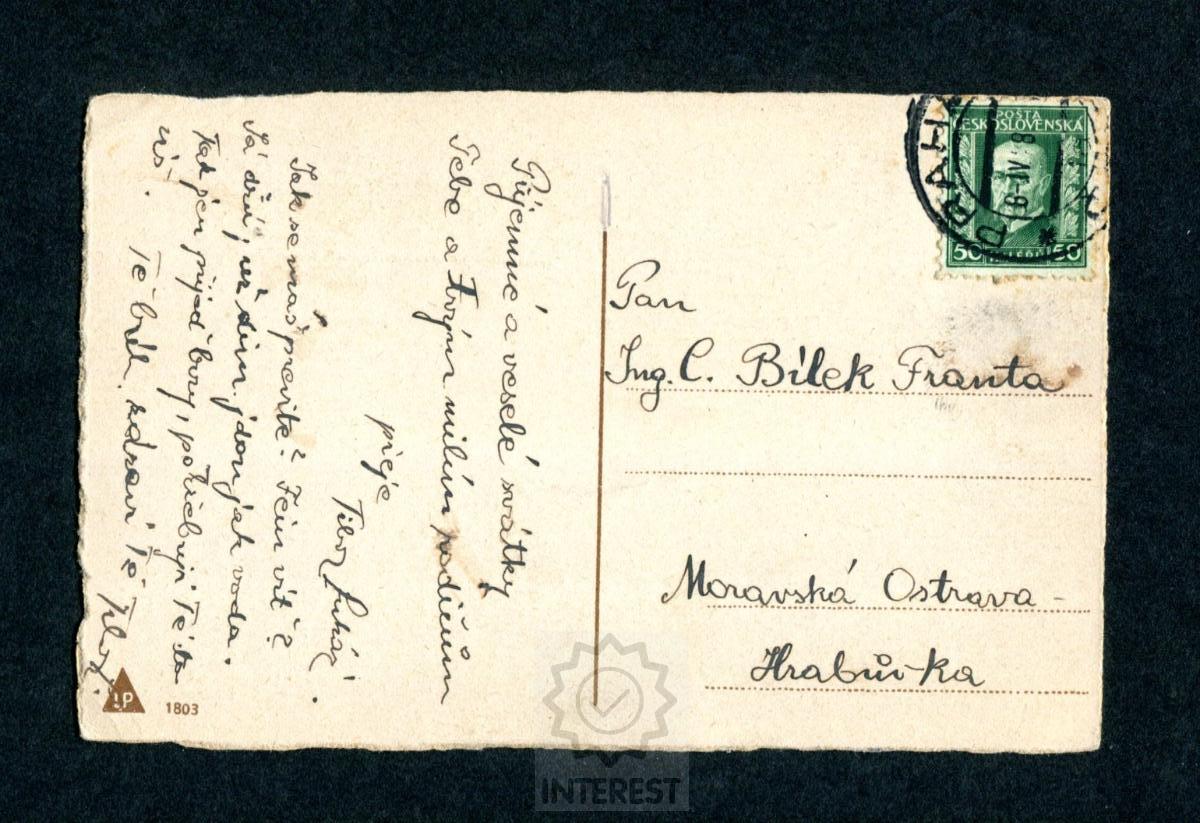 Příjemné a veselé svátky
Tebe a Tvým milým rodičům
přeje
Tibor Lukáč.
Jak se máš Frantě? Fein viť?
Já dřu, už dim. jdou jak voda.
Tak jen přijeď brzy, potřebuji Tě tu
Tě zdraví Tě
Tibor.
1803
POŠTA
ČESKOSLOVENSKÁ
50 50
PRAHA
8-IV 8
Pan
Ing. C. Bílek Franta
Moravská Ostrava-
Hrabůvka
INTEREST